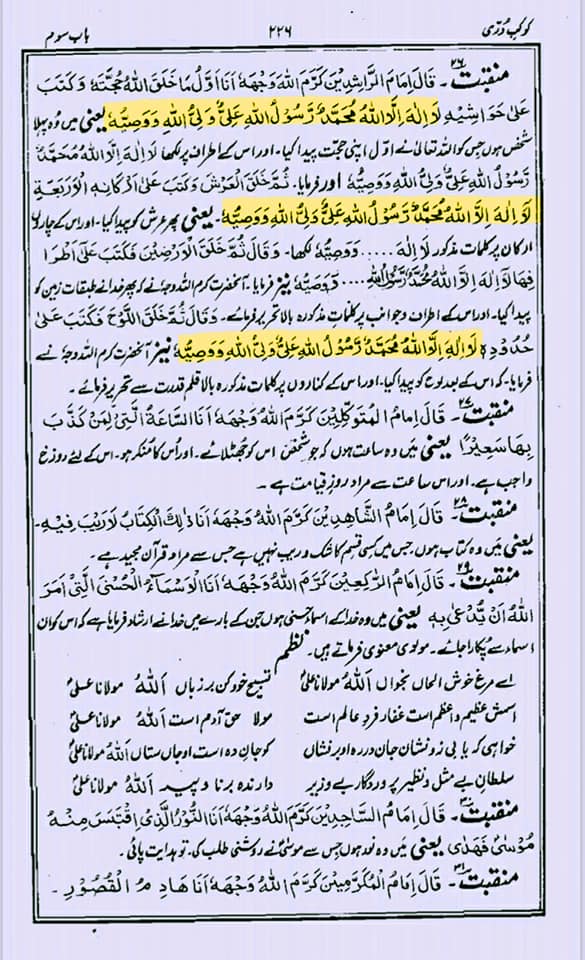 کوکب دُرّی ۲۲۶ باب سوم
منقبت ۲۶۔ قَالَ اِمَامُ الرَّاشِدِیْنَ کَرَّمَ اللهُ وَجْهَهٗ اَنَا اَوَّلُ مَا خَلَقَ اللهُ حُجَّتَهٗ وَکَتَبَ
عَلٰی حَوَاشِیْهِ لَا اِلٰهَ اِلَّا اللهُ مُحَمَّدٌ رَّسُوْلُ اللهِ عَلِیٌّ وَلِیُّ اللهِ وَوَصِیُّهٗ یعنی میں وُہ پہلا
شخص ہوں جس کو اللہ تعالیٰ نے اوّل اپنی حجّت پیدا کیا۔ اور اس کے اطراف پر لکھا لَا اِلٰهَ اِلَّا اللهُ مُحَمَّدٌ
رَّسُوْلُ اللهِ عَلِیٌّ وَلِیُّ اللهِ وَوَصِیُّهٗ اور فرمایا۔ ثُمَّ خَلَقَ الْعَرْشَ وَکَتَبَ عَلٰی اَرْکَانِهِ الْاَرْبَعَةِ
لَا اِلٰهَ اِلَّا اللهُ مُحَمَّدٌ رَّسُوْلُ اللهِ عَلِیٌّ وَلِیُّ اللهِ وَوَصِیُّهٗ۔ یعنی پھر عرش کو پیدا کیا۔ اور اس کے چاروں
ارکان پر کلمات مذکور لَا اِلٰهَ ..... وَوَصِیُّهٗ لکھا۔ وَقَالَ ثُمَّ خَلَقَ الْاَرْضِیْنَ فَکَتَبَ عَلٰی اَطْرَا
فِهَا لَا اِلٰهَ اِلَّا اللهُ مُحَمَّدٌ رَّسُوْلُ اللهِ .... وَوَصِیُّهٗ نیز فرمایا۔ آنحضرت کرم اللہ وجہٗ نے کہ پھر خدا نے طبقات زمین کو
پیدا کیا۔ اور اس کے اطراف و جوانب پر کلماتِ مذکورہ بالا تحریر فرمائے۔ وَقَالَ ثُمَّ خَلَقَ اللَّوْحَ فَکَتَبَ عَلٰی
حُدُوْدِہٖ لَا اِلٰهَ اِلَّا اللهُ مُحَمَّدٌ رَّسُوْلُ اللهِ عَلِیٌّ وَلِیُّ اللهِ وَوَصِیُّهٗ نیز آنحضرت کرم اللہ وجہٗ نے
فرمایا۔ کہ اس کے بعد لوح کو پیدا کیا۔ اور اس کے کناروں پر کلمات مذکورہ بالا قلمِ قدرت سے تحریر فرمائے۔
منقبت ۲۷۔ قَالَ اِمَامُ الْمُتَوَکِّلِیْنَ کَرَّمَ اللهُ وَجْهَهٗ اَنَا السَّاعَةُ الَّتِیْ لِمَنْ کَذَّبَ
بِهَا سَعِیْرًا یعنی میں وہ ساعت ہوں کہ جو شخص اس کو جھٹلائے۔ اور اُس کا منکر ہو۔ اس کے لئے دوزخ
واجب ہے۔ اور اس ساعت سے مراد روزِ قیامت ہے۔
منقبت ۲۸۔ قَالَ اِمَامُ الشَّاهِدِیْنَ کَرَّمَ اللهُ وَجْهَهٗ اَنَا ذٰلِكَ الْکِتَابُ لَا رَیْبَ فِیْهِ۔
یعنی میں وہ کتاب ہوں، جس میں کسی قسم کا شک و ریب نہیں ہے جس سے مراد قرآن مجید ہے۔
منقبت ۲۹۔ قَالَ اِمَامُ الرَّاکِعِیْنَ کَرَّمَ اللهُ وَجْهَهٗ اَنَا الْاَسْمَآءُ الْحُسْنٰی الَّتِیْ اَمَرَ
اللهُ اَنْ یُّدْعٰی بِهٖ یعنی میں وہ خدا کے اسماءِ حسنیٰ ہوں جن کے بارے میں خدا نے ارشاد فرمایا ہے کہ اس کو ان
اسماء سے پکارا جائے۔ مولوی معنوی فرماتے ہیں۔ نظم
اے مرغ خوش الحاں بخواں اللهُ مولانا علیؑ تسبیح خود کن بر زباں اللهُ مولانا علیؑ
اسمش عظیم و اعظم است غفار فردِ عالم است مولا حق آدم است اللهُ مولانا علیؑ
خواہی کہ یابی زو نشاں جان در رہ او برفشاں کو جان دہ است او جاں ستاں اللهُ مولانا علیؑ
سلطان بے مثل و نظیر پروردگار بے وزیر دارندہ برنا و پیر اللهُ مولانا علیؑ
منقبت ۳۰۔ قَالَ اِمَامُ السَّاجِدِیْنَ کَرَّمَ اللهُ وَجْهَهٗ اَنَا النُّوْرُ الَّذِی اقْتَبَسَ مِنْهُ
مُوْسٰی فَهُدٰی یعنی میں وہ نور ہوں جس سے موسیٰؑ نے روشنی طلب کی۔ تو ہدایت پائی۔
منقبت ۳۱۔ قَالَ اِمَامُ الْمُکَرَّمِیْنَ کَرَّمَ اللهُ وَجْهَهٗ اَنَا هَادِمُ الْقُصُوْرِ۔